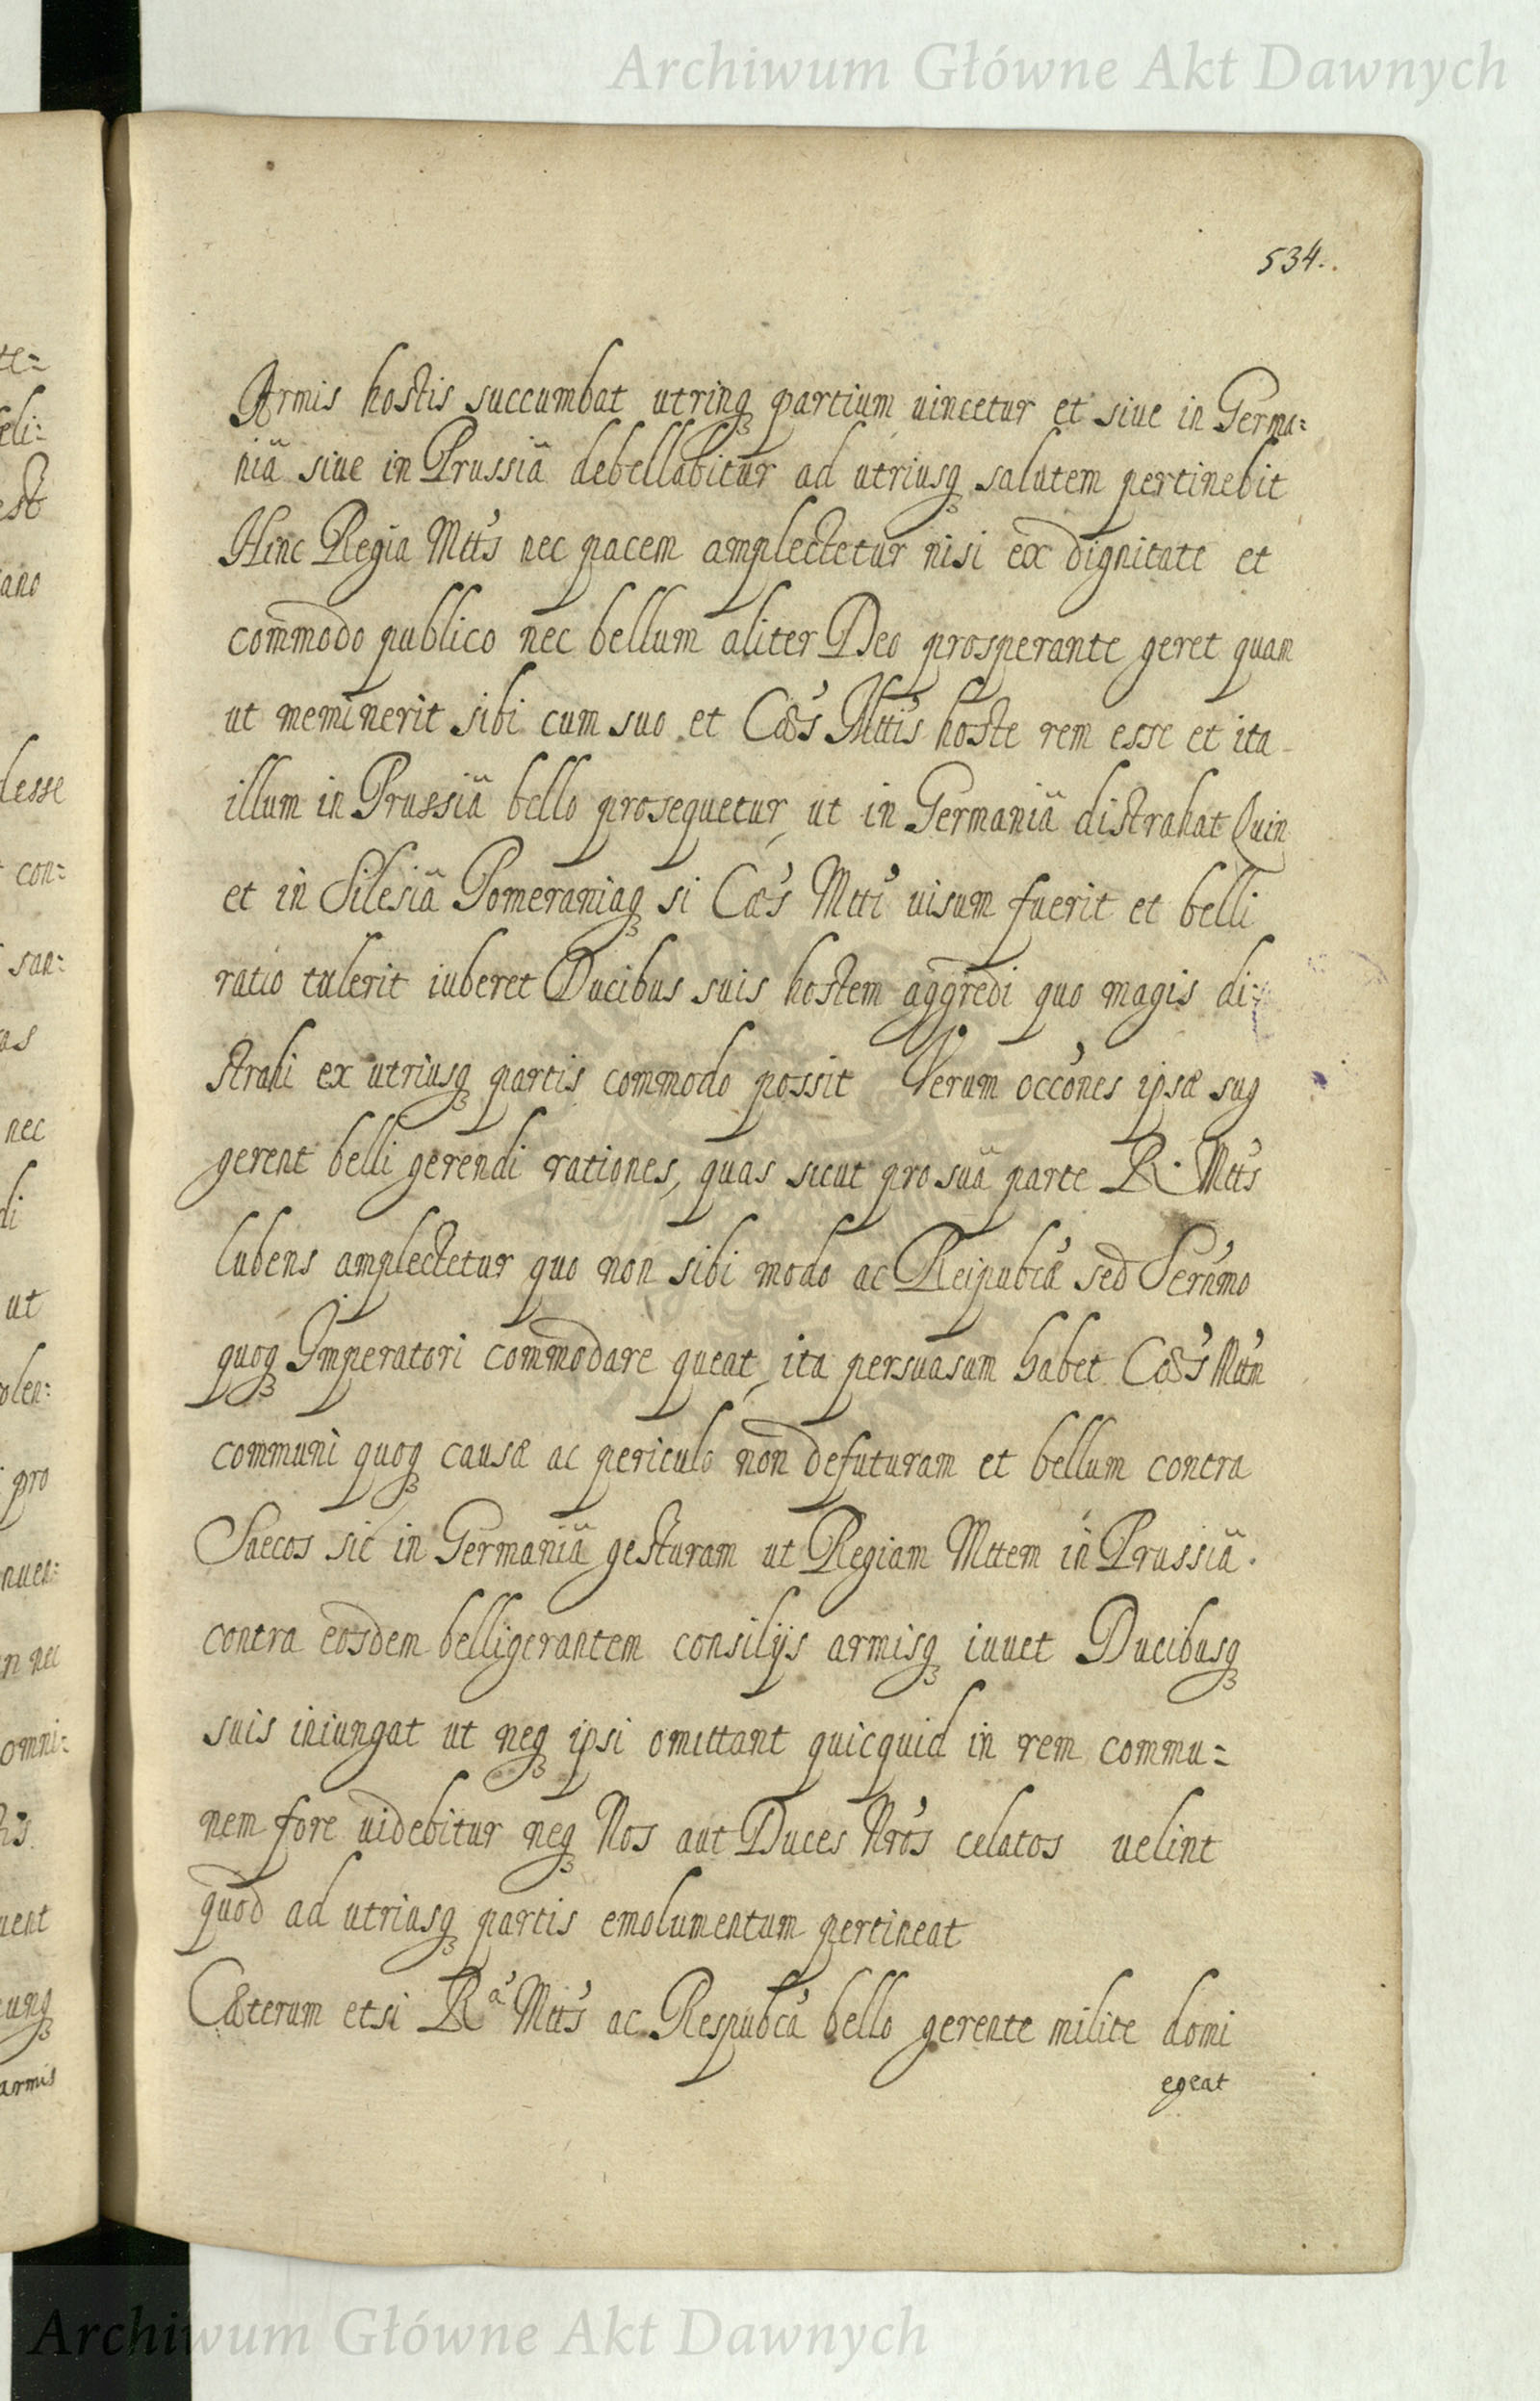 Archiwum Główne Akt Dawnych
534.
Armis hostis succumbat utrinq partium uincetur et siue in Germa=
niã siue in Prussiã debellabitur ad utriusq salutem pertinebit
Hinc Regia Mtt's nec pacem amplectetur nisi ex dignitate et
commodo publico nec bellum aliter Deo prosperante geret quam
ut meminerit sibi cum suo et Cæs' Mttis' hoste rem esse et ita
illum in Prussiã bello prosequetur, ut in Germaniã distrahat Quin
et in Silesiã Pomeraniaq si Cæs' Mtti' uisum fuerit et belli
ratio tulerit iuberet Ducibus suis hostem aggredi quo magis di=
strahi ex utriusq partis commodo possit Verum occ'ones ipsæ sug
gerent belli gerendi rationes, quas sicut pro suã parte R. Mtt's
lubens amplectetur quo non sibi modo ac Reipub'cæ sed Seren'mo
quoq Imperatori commodare queat, ita persuasum habet Cæs' Mtt'm
communi quoq causæ ac periculo non defuturam et bellum contra
Suecos sic in Germaniã gesturam ut Regiam Mttem in Prussiã
contra eosdem belligerantem consilijs armisq iuuet Ducibusq
suis iniungat ut neq ipsi omittant quicquid in rem commu=
nem fore uidebitur neq Nos aut Duces Nr'os celatos uelint
quod ad utriusq partis emolumentum pertineat
Cæterum etsi Rª' Mtt's ac Respub'ca bello gerente milite domi
egeat
te=
eli=
est
iano
desse
con=
san=
as
nec
di
ut
olen=
pro
nuen=
n nec
omni=
uent
cunq
armis
Archiwum Główne Akt Dawnych